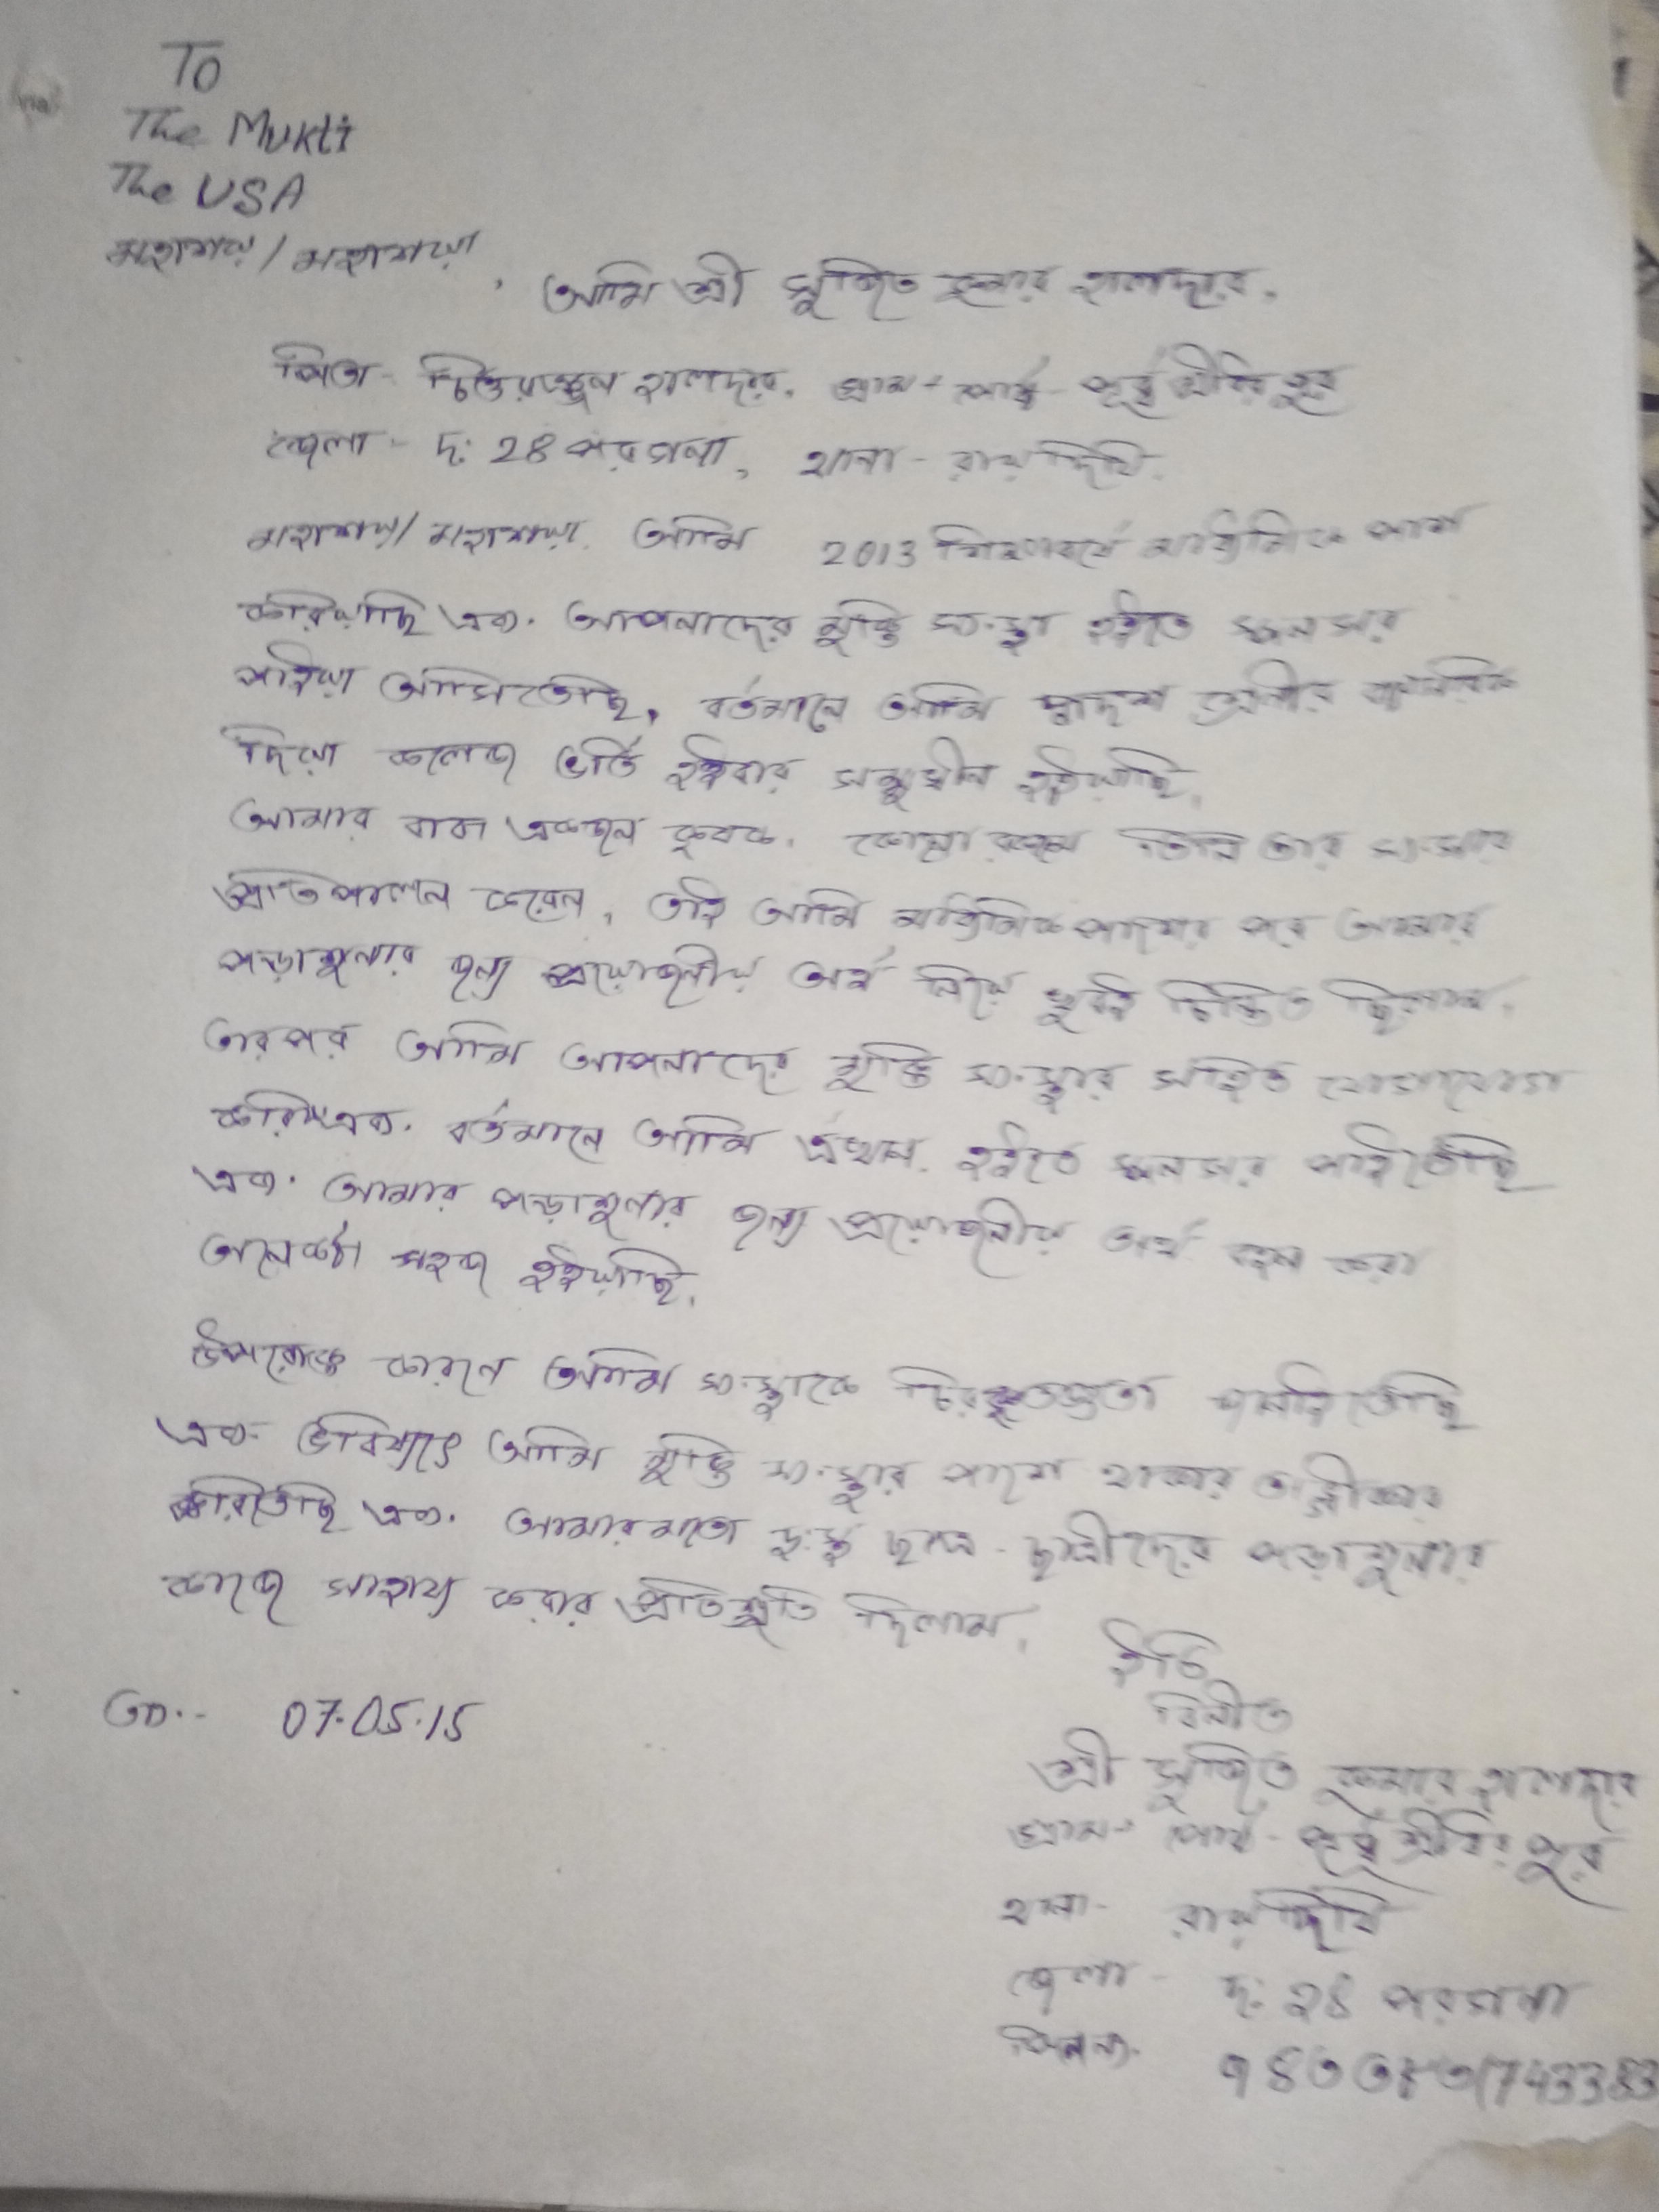 To
The Mukti
The USA
মহাশয়/মহাশয়া,
আমি শ্রী সুজিত কুমার হালদার,
পিতা - চিত্তরঞ্জন হালদার, গ্রাম + পোষ্ট - পূর্ব শ্রীধরপুর
জেলা - দঃ 24 পরগনা, থানা - রায়দিঘি.
মহাশয়/মহাশয়া, আমি 2013 শিক্ষাবর্ষে মাধ্যমিক পাশ
করিয়াছি এবং আপনাদের মুক্তি সংস্থা হইতে স্পনসর
পাইয়া আসিতেছি, বর্তমানে আমি দ্বাদশ শ্রেণীর
দিয়া কলেজ ভর্তি হইবার সম্মুখীন হইয়াছি,
আমার বাবা একজন কৃষক, কোনো রকমে তিনি তার সংসার
প্রতিপালন করেন, তাই আমি মাধ্যমিক পাশের পর আমার
পড়াশুনার জন্য প্রয়োজনীয় অর্থ নিয়ে খুবই চিন্তিত ছিলাম,
তারপর আমি আপনাদের মুক্তি সংস্থার সহিত যোগাযোগ
করি এবং বর্তমানে আমি এখান হইতে স্পনসর পাইতেছি
এবং আমার পড়াশুনার জন্য প্রয়োজনীয় অর্থ বহন করা
অনেকটা সহজ হইয়াছি,
উপরোক্ত কারনে আমি সংস্থাকে চিরকৃতজ্ঞতা জানাইতেছি
এবং ভবিষ্যৎে আমি মুক্তি সংস্থার পাশে থাকার অঙ্গীকার
করিতেছি এবং আমার মতো দুঃস্থ ছাত্র - ছাত্রীদের পড়াশুনার
কাজে সাহায্য করার প্রতিশ্রুতি দিলাম,
ইতি
বিনীত
তাং.- 07.05.15
শ্রী সুজিত কুমার হালদার
গ্রাম + পোষ্ট - পূর্ব শ্রীধরপুর
থানা - রায়দিঘি
জেলা - দঃ ২৪ পরগনা
পিন নং - ৭৪৩৩৮৩(743383